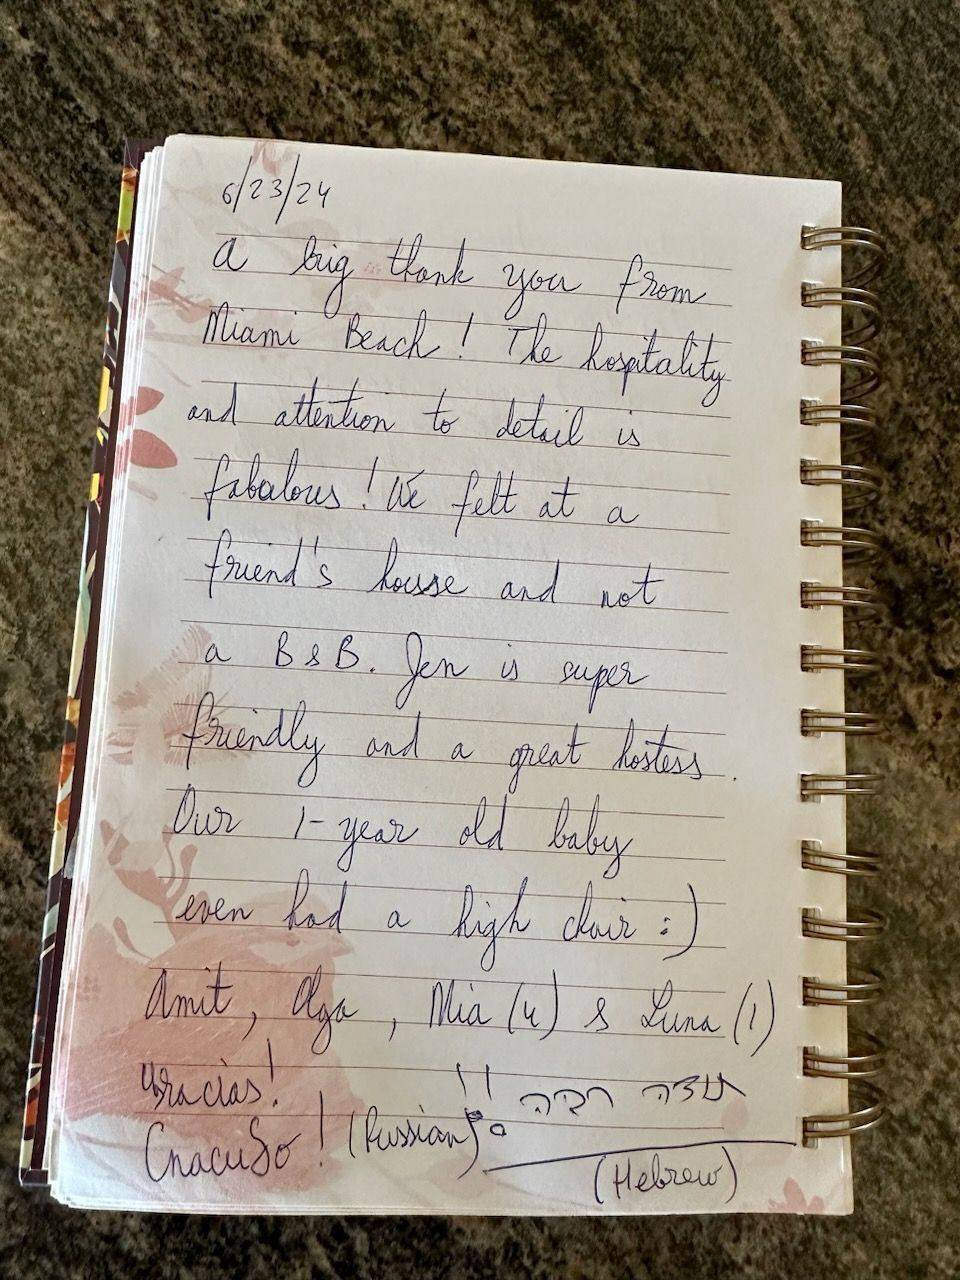 6/23/24
A big thank you from
Miami Beach! The hospitality
and attention to detail is
fabalous! We felt at a
friend's house and not
a B & B. Jen is super
friendly and a great hostess.
Our 1-year old baby
even had a high chair :)
Amit, Olga, Mia (4) & Luna (1)
Gracias! תודה רבה !!
Спасибо! (Russian)
(Hebrew)